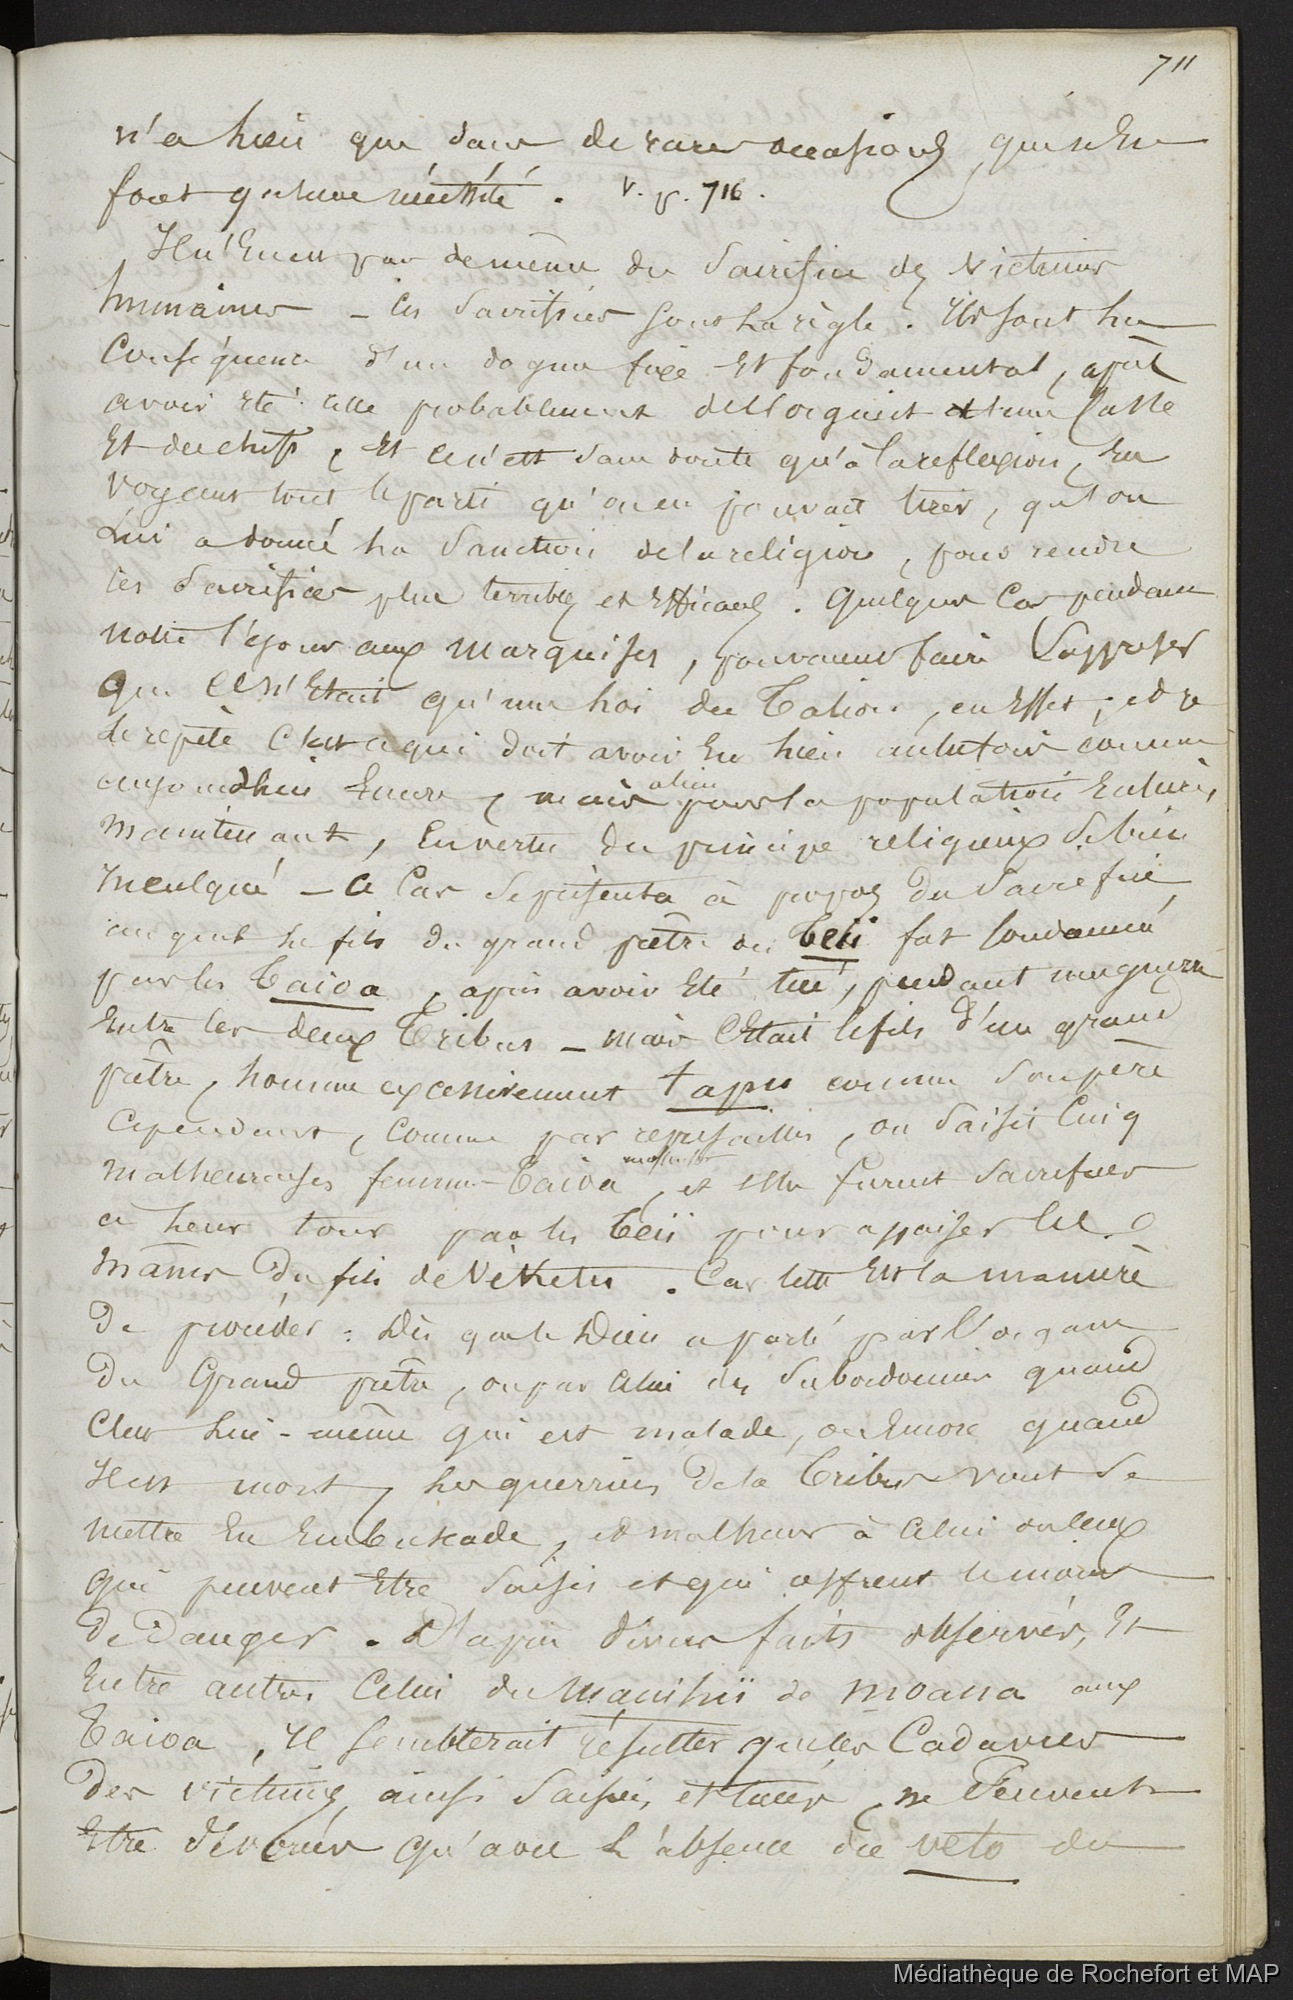 711
n'a lieu que dans de rares occasions, qu'elle ne
soit qu'une nécessité. V. p. 716.
Il n'en est pas de même du sacrifice des victimes
humaines – ces sacrifices sont la règle. Ils sont la
conséquence d'un dogme fixe et fondamental, après
avoir été celle probablement de l'orgueil d'une caste
et des chefs, et ce n'est sans doute qu'à la reflexion, en
voyant tout le parti qu'on en pouvait tirer, qu'on
lui a donné la sanction de la religion, pour rendre
ces sacrifices plus terribles et efficaces. Quelques cas pendant
notre séjour aux Marquises, pouvaient faire supposer
que ce n'était qu'une loi du Talion, en effet, et je
le repète c'est ce qui doit avoir eu lieu autrefois comme
aujourd'hui encore, mais pour la population entière,
maintenant, en vertu du principe religieux si bien
inculqué – ce cas se présenta à propos du sacrifice
auquel le fils du grand prêtre des Teii fut condamné
par les Taioa, après avoir été tué, pendant une guerre
entre les deux Tribus – mais c'était le fils d'un grand
prêtre, homme excessivement tapu comme son père
Cependant, comme par represailles, on saisit cinq
malheureuses femmes Taioa, et elles furent sacrifiées
à leur tour par les Teii pour appaiser les
manes du fils de Veketu. Car telle est la manière
de procéder : Dès que le Dieu a parlé par l'organe
du Grand prêtre, ou par celui des subordonnés quand
c'est lui-même qui est malade, ou encore quand
il est mort, les guerriers de la Tribu vont se
mettre en embuscade, et malheur à celui ou ceux
qui peuvent être saisis et qui offrent le moins
de danger. D'après divers faits observés, et
entre autres celui du Manihii de Moana aux
Taioa, il semblerait résulter que les cadavres
des victimes ainsi saisies et tuées, ne peuvent
être dévorés qu'avec l'absence du veto du
Médiathèque de Rochefort et MAP